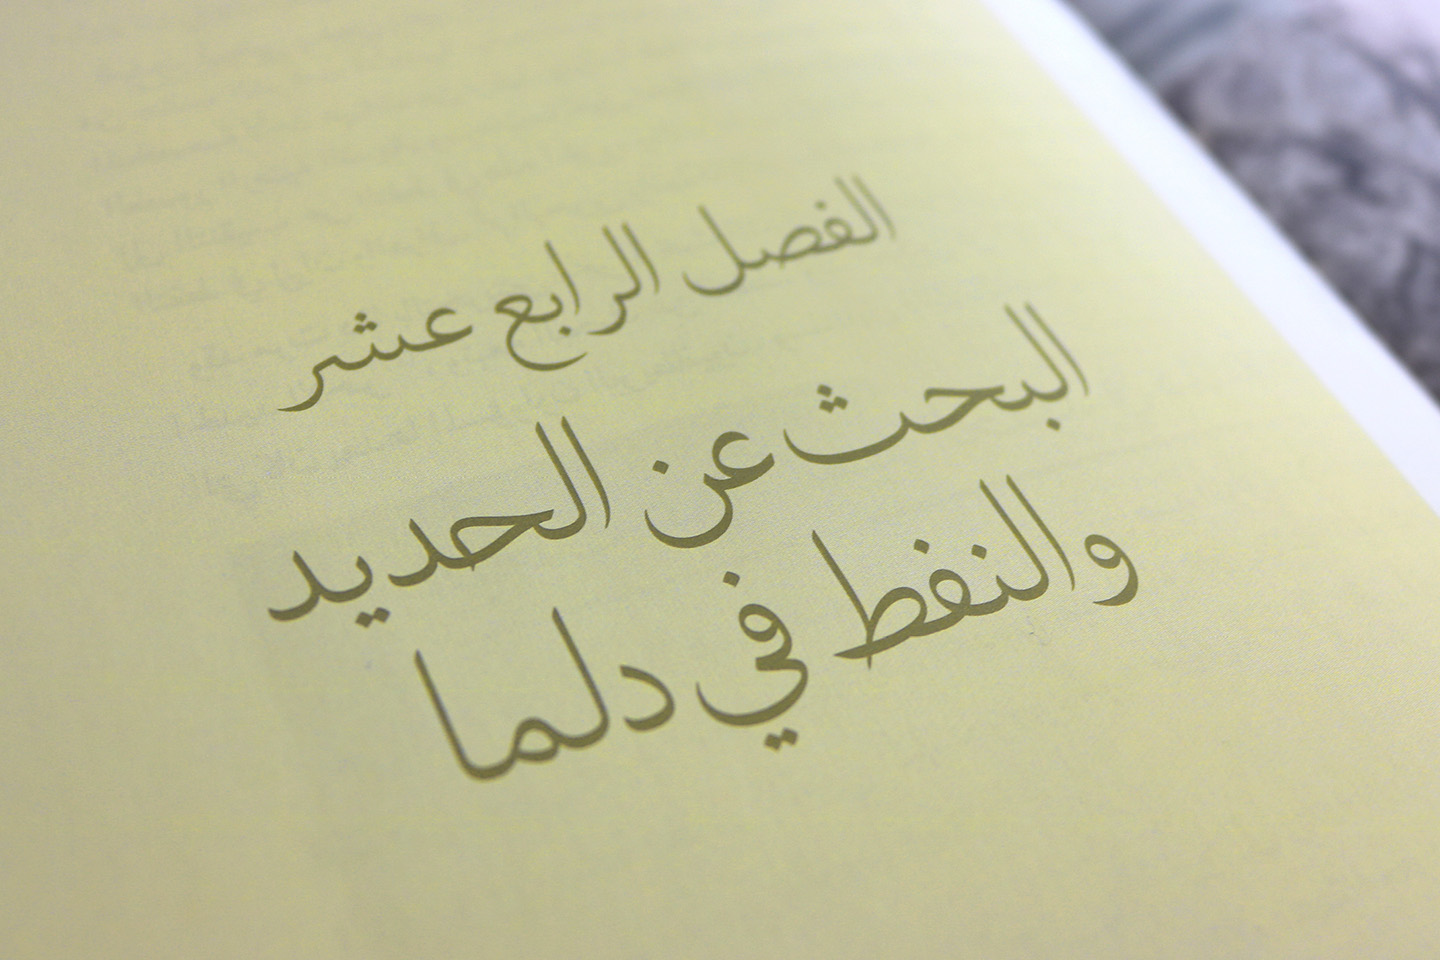 الفصل الرابع عشر
البحث عن الحديد
والنفط في دلما